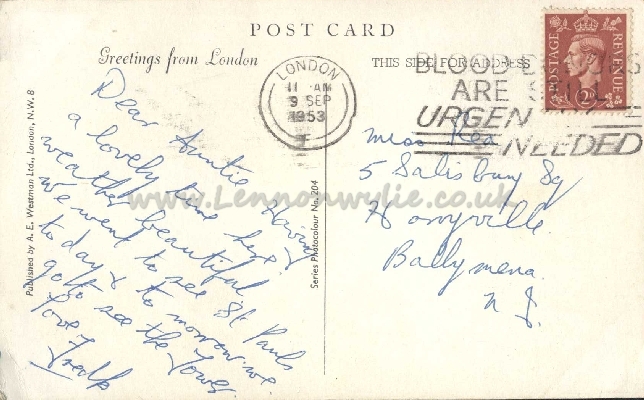 POST CARD
Greetings from London
THIS SIDE FOR ADDRESS
Published by A. E. Westman Ltd., London, N.W.8
Series Photocolour No. 204
LONDON
11 AM
9 SEP
1953
BLOOD
ARE
URGEN
NEEDED
POSTAGE
REVENUE
2D
Dear Auntie Having
a lovely time here
weather beautiful
we went to see St Pauls
to day & to morrow we
go to see the Tower
love
Miss Rea
5 Salisbury Sq
Harryville
Ballymena
N I.
www.Lennonwylie.co.uk